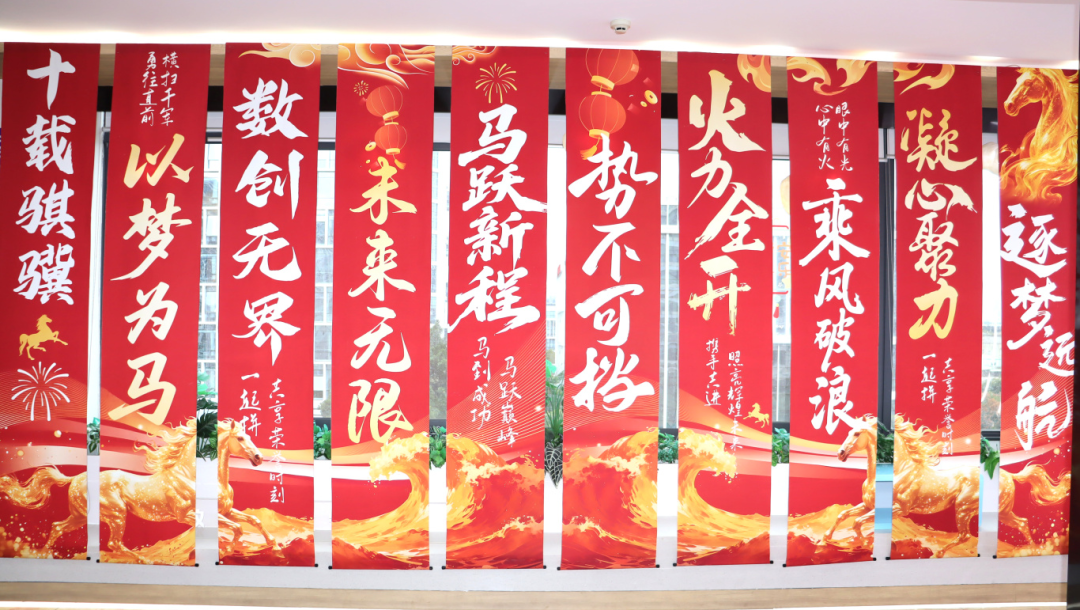 十载骐骥
横扫千军
勇往直前
以梦为马
数创无界
共享荣誉时刻
一起拼
未来无限
马跃新程
马跃巅峰
马到成功
势不可挡
火力全开
照亮辉煌未来
携手共进
眼中有光
心中有火
乘风破浪
凝心聚力
共享荣誉时刻
一起拼
逐梦远航